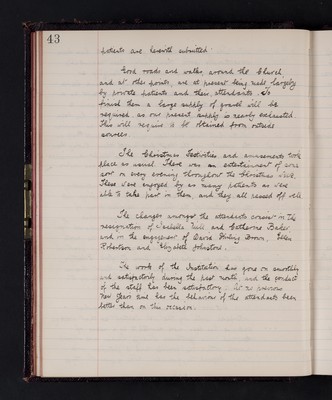 43
patients are herewith submitted.
Good roads and walks around the Church,
and at other points, are at present being made largely
by private patients and their attendants. To
finish them a large supply of gravel will be
required as our present supply is nearly exhausted.
This will require to be obtained from outside
sources.
The Christmas Festivities and amusements took
place as usual. There was an entertainment of some
sort on every evening throughout the Christmas week.
These were enjoyed by as many patients as were
able to take part in them, and they all passed off well.
The changes amongst the attendants consist in the
resignation of Isabella Hill and Catherine Baker
and in the engagement of David Stirling Brown, Ellen
Robertson and Elizabeth Johnstone.
The work of the Institution has gone on smoothly
and satisfactorily during the past month, and the conduct
of the staff has been satisfactory. At no previous
New Years time has the behaviour of the attendants been
better than on this occasion.